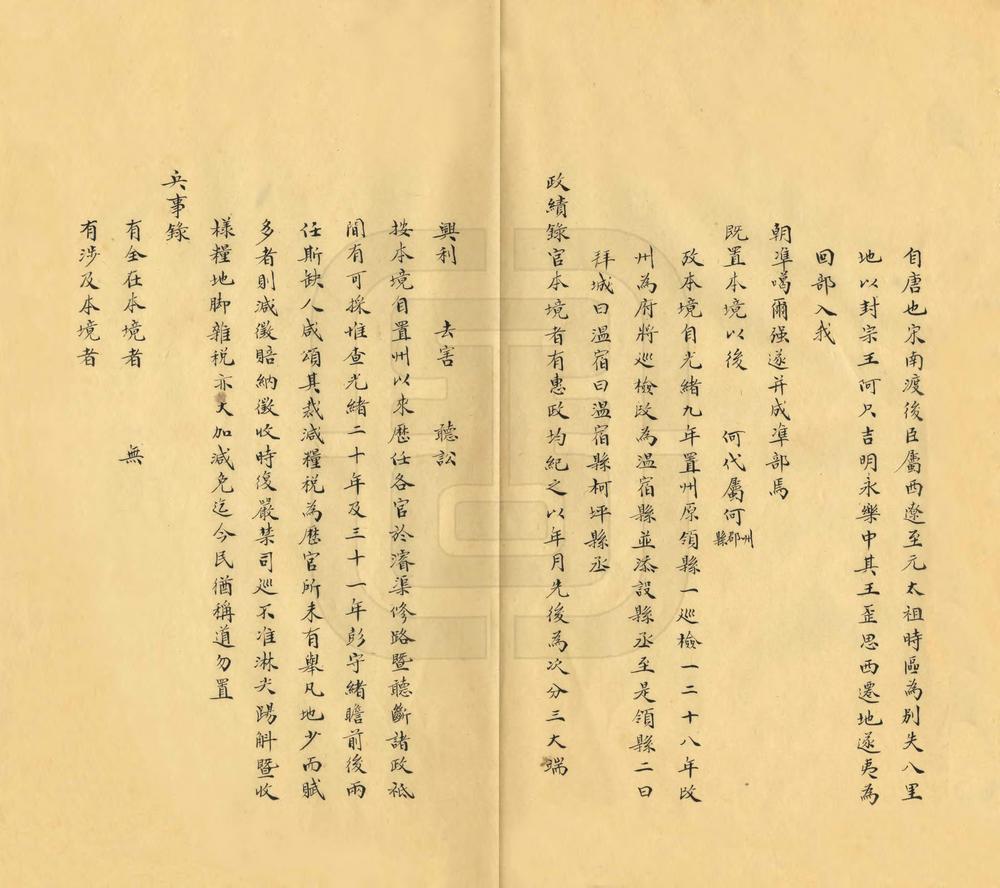 自唐也宋南渡後臣屬西遼至元太祖時區為別失八里
地以封宗王阿只吉明永樂中其王歪思西遷地遂夷為
回部入我
朝準噶爾强遂并成準部馬
既置本境以後　何代屬何州郡縣
攷本境自光緒九年置州原領縣一巡檢一二十八年改
州為府將巡檢改為溫宿縣並添設縣丞至是領縣二曰
拜城曰溫宿曰溫宿縣柯坪縣丞
政績錄官本境者有惠政均紀之以年月先後為次分三大端
興利　去害　聽訟
按本境自置州以來歷任各官於濬渠修路暨聽斷諸政祗
間有可採惟查光緒二十年及三十一年彭守緒瞻前後兩
任斯缺人咸頌其裁減糧稅為歷官所未有舉凡地少而賦
多者則減徵賠納徵收時復嚴禁司巡不准淋尖踢斛暨收
樣糧地脚雜稅亦大加減免迄今民猶稱道勿置
兵事錄
有全在本境者　無
有涉及本境者